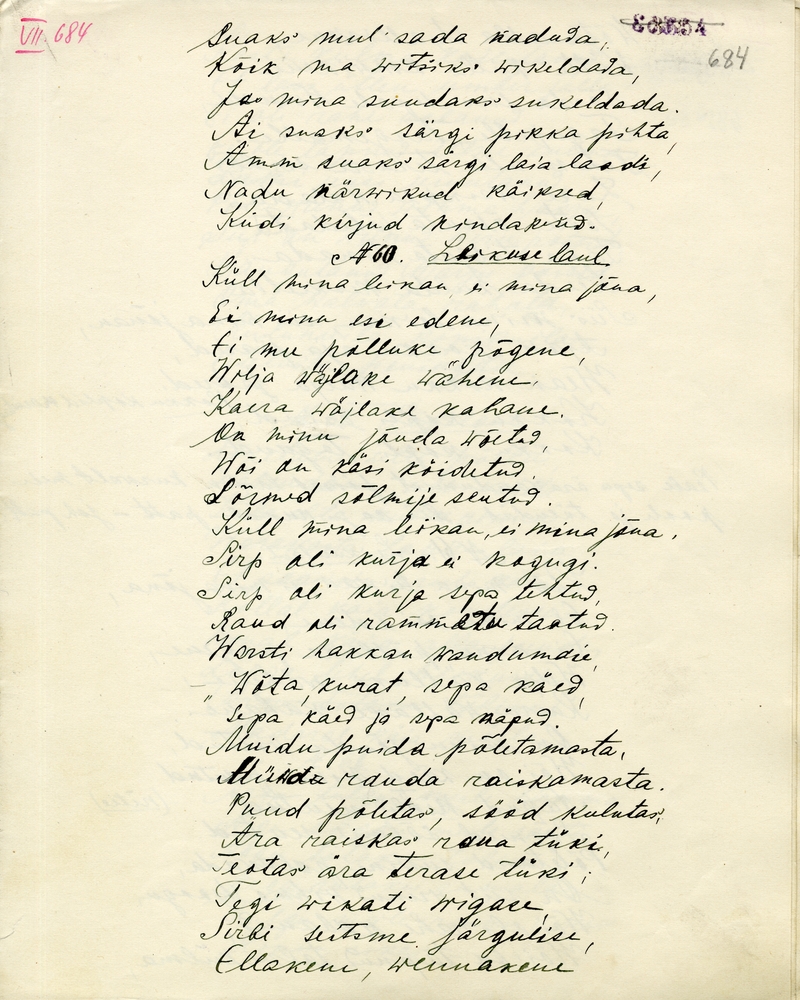 VII 684
684
Suaks mul sada naduda,
Kõik ma witsiks wikeldada,
Jao mina suudaks sukeldada.
Ai suaks särgi pikka pihta,
Amm suaks särgi laia laadi,
Nadu närwikud käiksed,
Küdi kirjud kindakesed.
№ 60. Leikuse laul
Küll mina leikan, ei mina jõua,
Ei minu esi edene,
Ei mu põlluke põgene,
Wilja wäjlake wähene,
Kaera wäjlake kahane.
On minu jõuda wõetud,
Wõi on käsi köidetud,
Sõrmed sõlmije seutud.
Küll mina leikan, ei mina jõua,
Sirp oli kurja ei kogugi.
Sirp oli kurja sepa tehtud,
Raud oli rammetu taotud.
Warsti hakkan wandumaie,
„Wõta, kurat, sepa käed,
Sepa käed ja sepa näpud.
Muidu puida põletamasta,
Muidu rauda raiskamasta.
Puud põletas, sööd kulutas,
Ära raiskas raua tüki,
Teotas ära terase tüki;
Tegi wikati wigase,
Sirbi seitsme järgulise,
Ellakene, wennakene